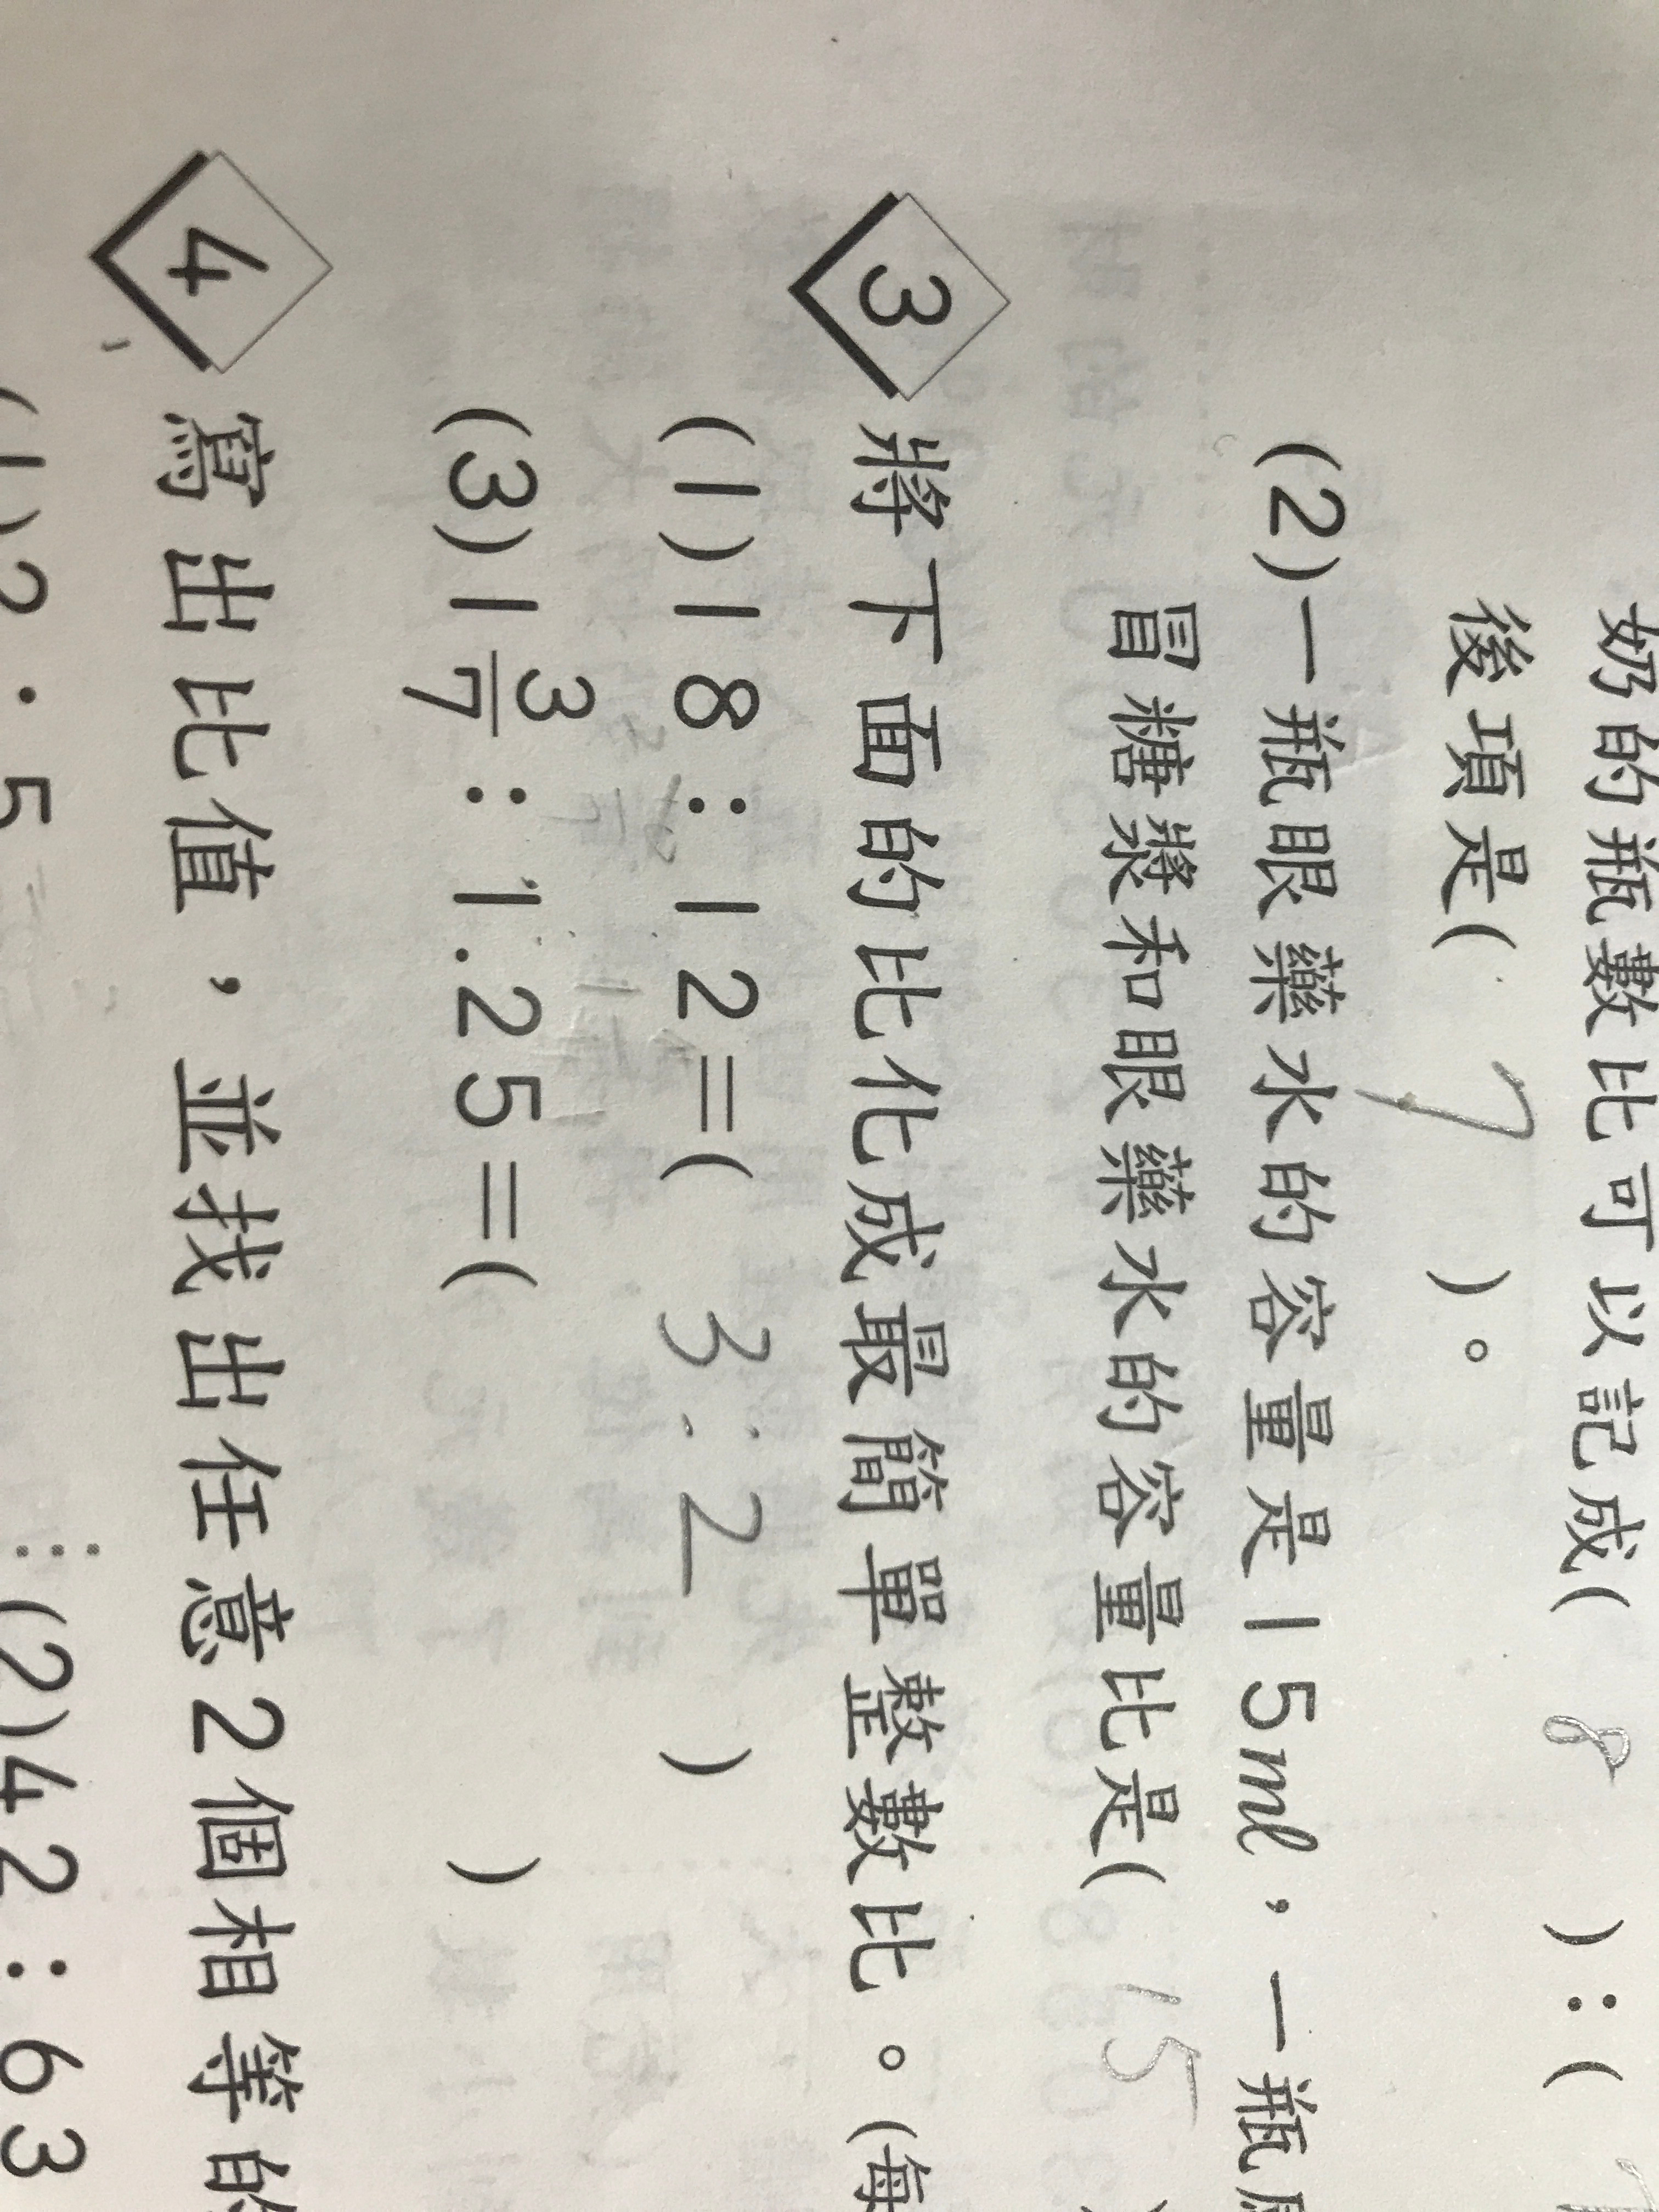 奶的瓶數比可以記成( 8 ):(
後項是( 7 )。
(2)一瓶眼藥水的容量是15ml,一瓶
冒糖漿和眼藥水的容量比是( 15
3 將下面的比化成最簡單整數比。(每
(1)18:12=( 3:2 )
(3)1 3/7:1.25=( )
4 寫出比值,並找出任意2個相等的
(1)2:5 (2)42:63